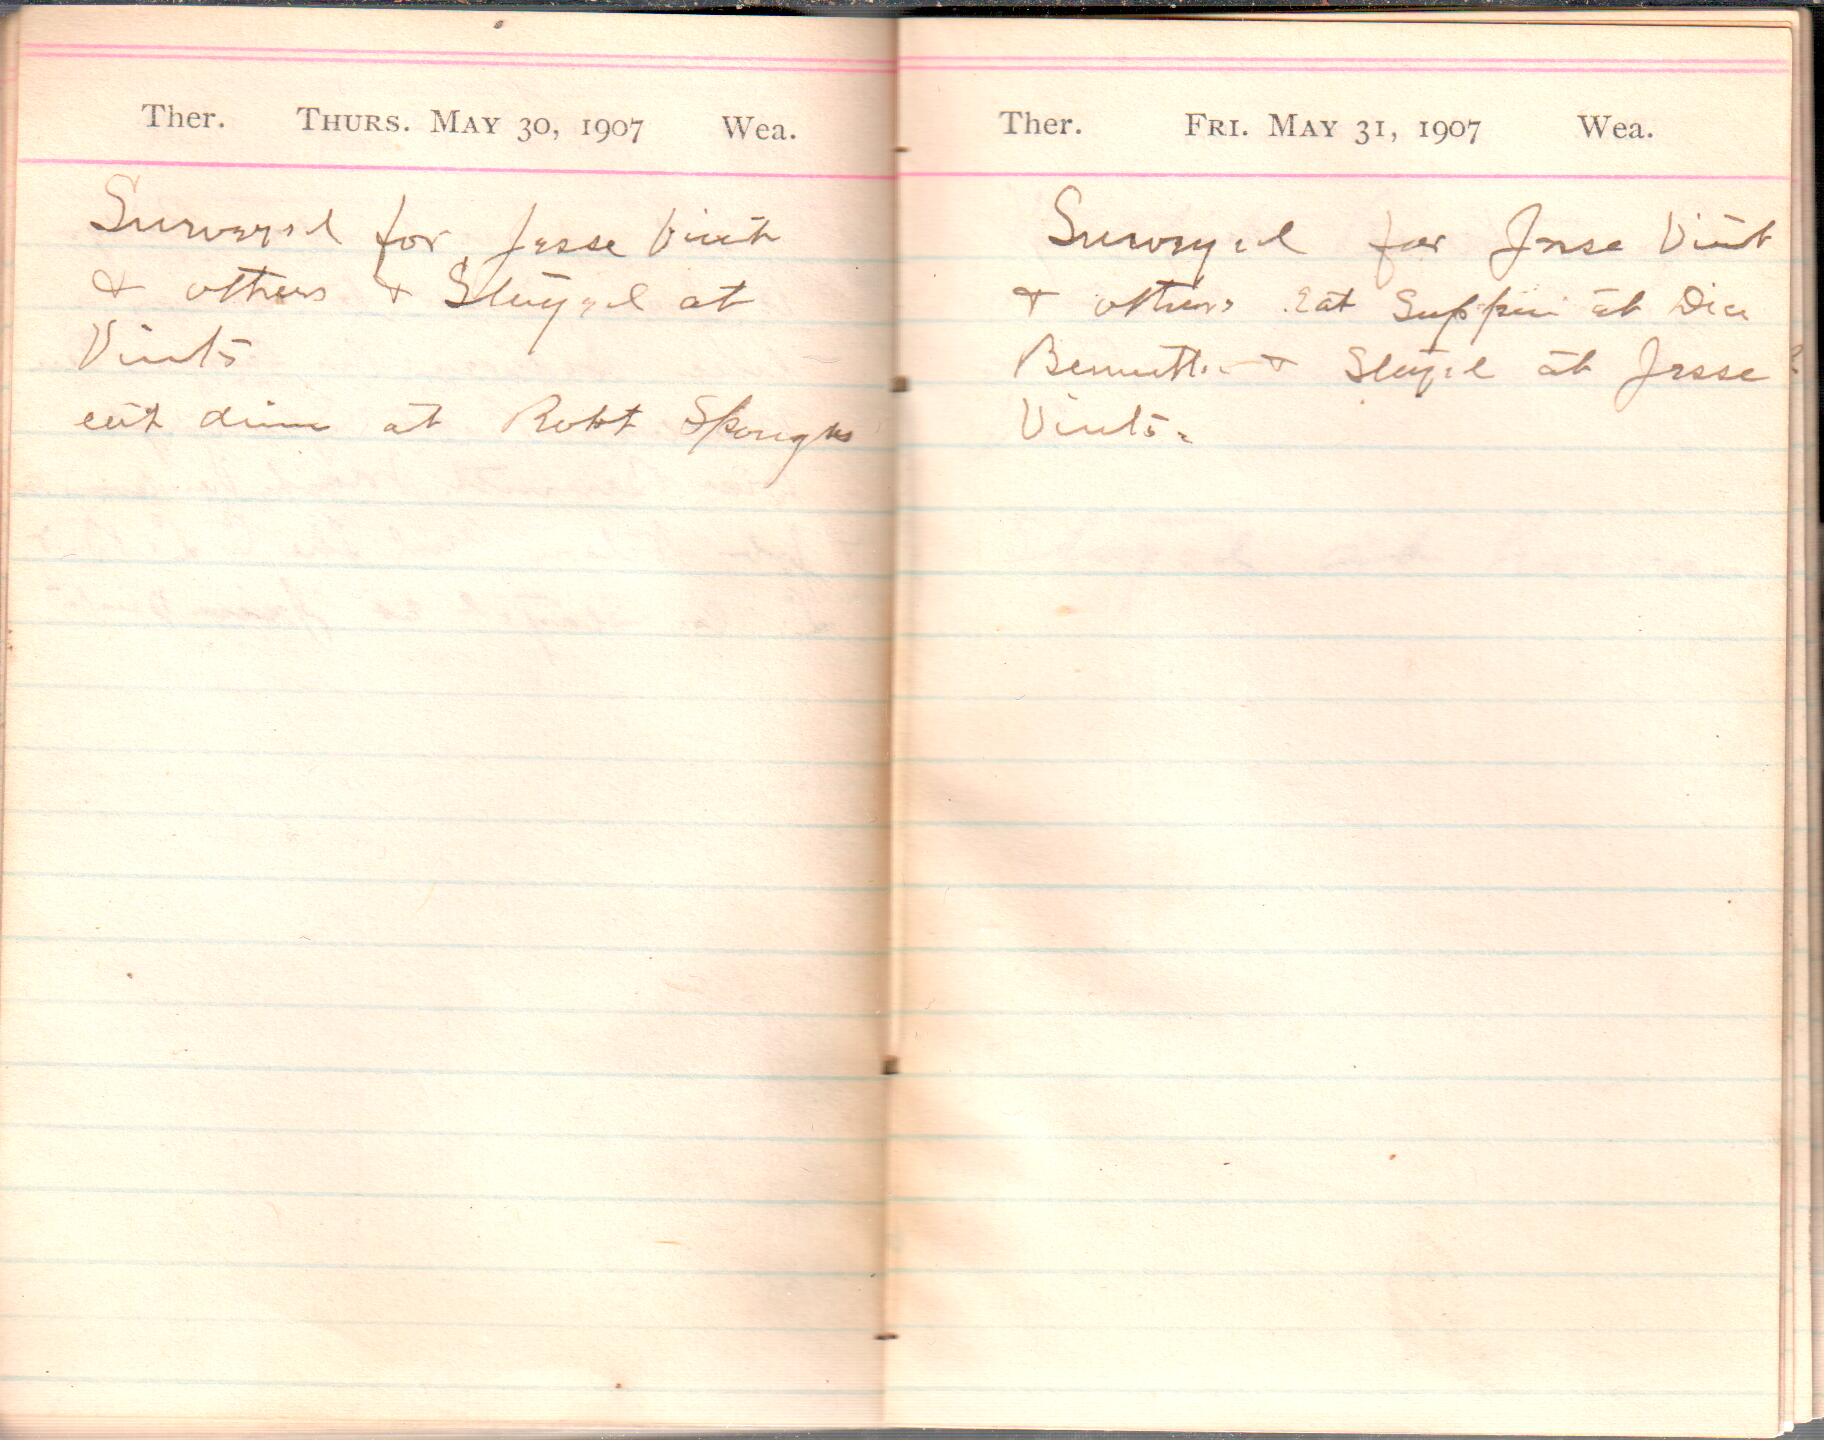 Ther. THURS. MAY 30, 1907 Wea.
Surveyed for Jesse Vint
& others & Stayed at
Vints
eat dinner at Robt
Ther. FRI. MAY 31, 1907 Wea.
Surveyed for Jesse Vint
& others Eat Supper at
& Stayed at Jesse
Vints.